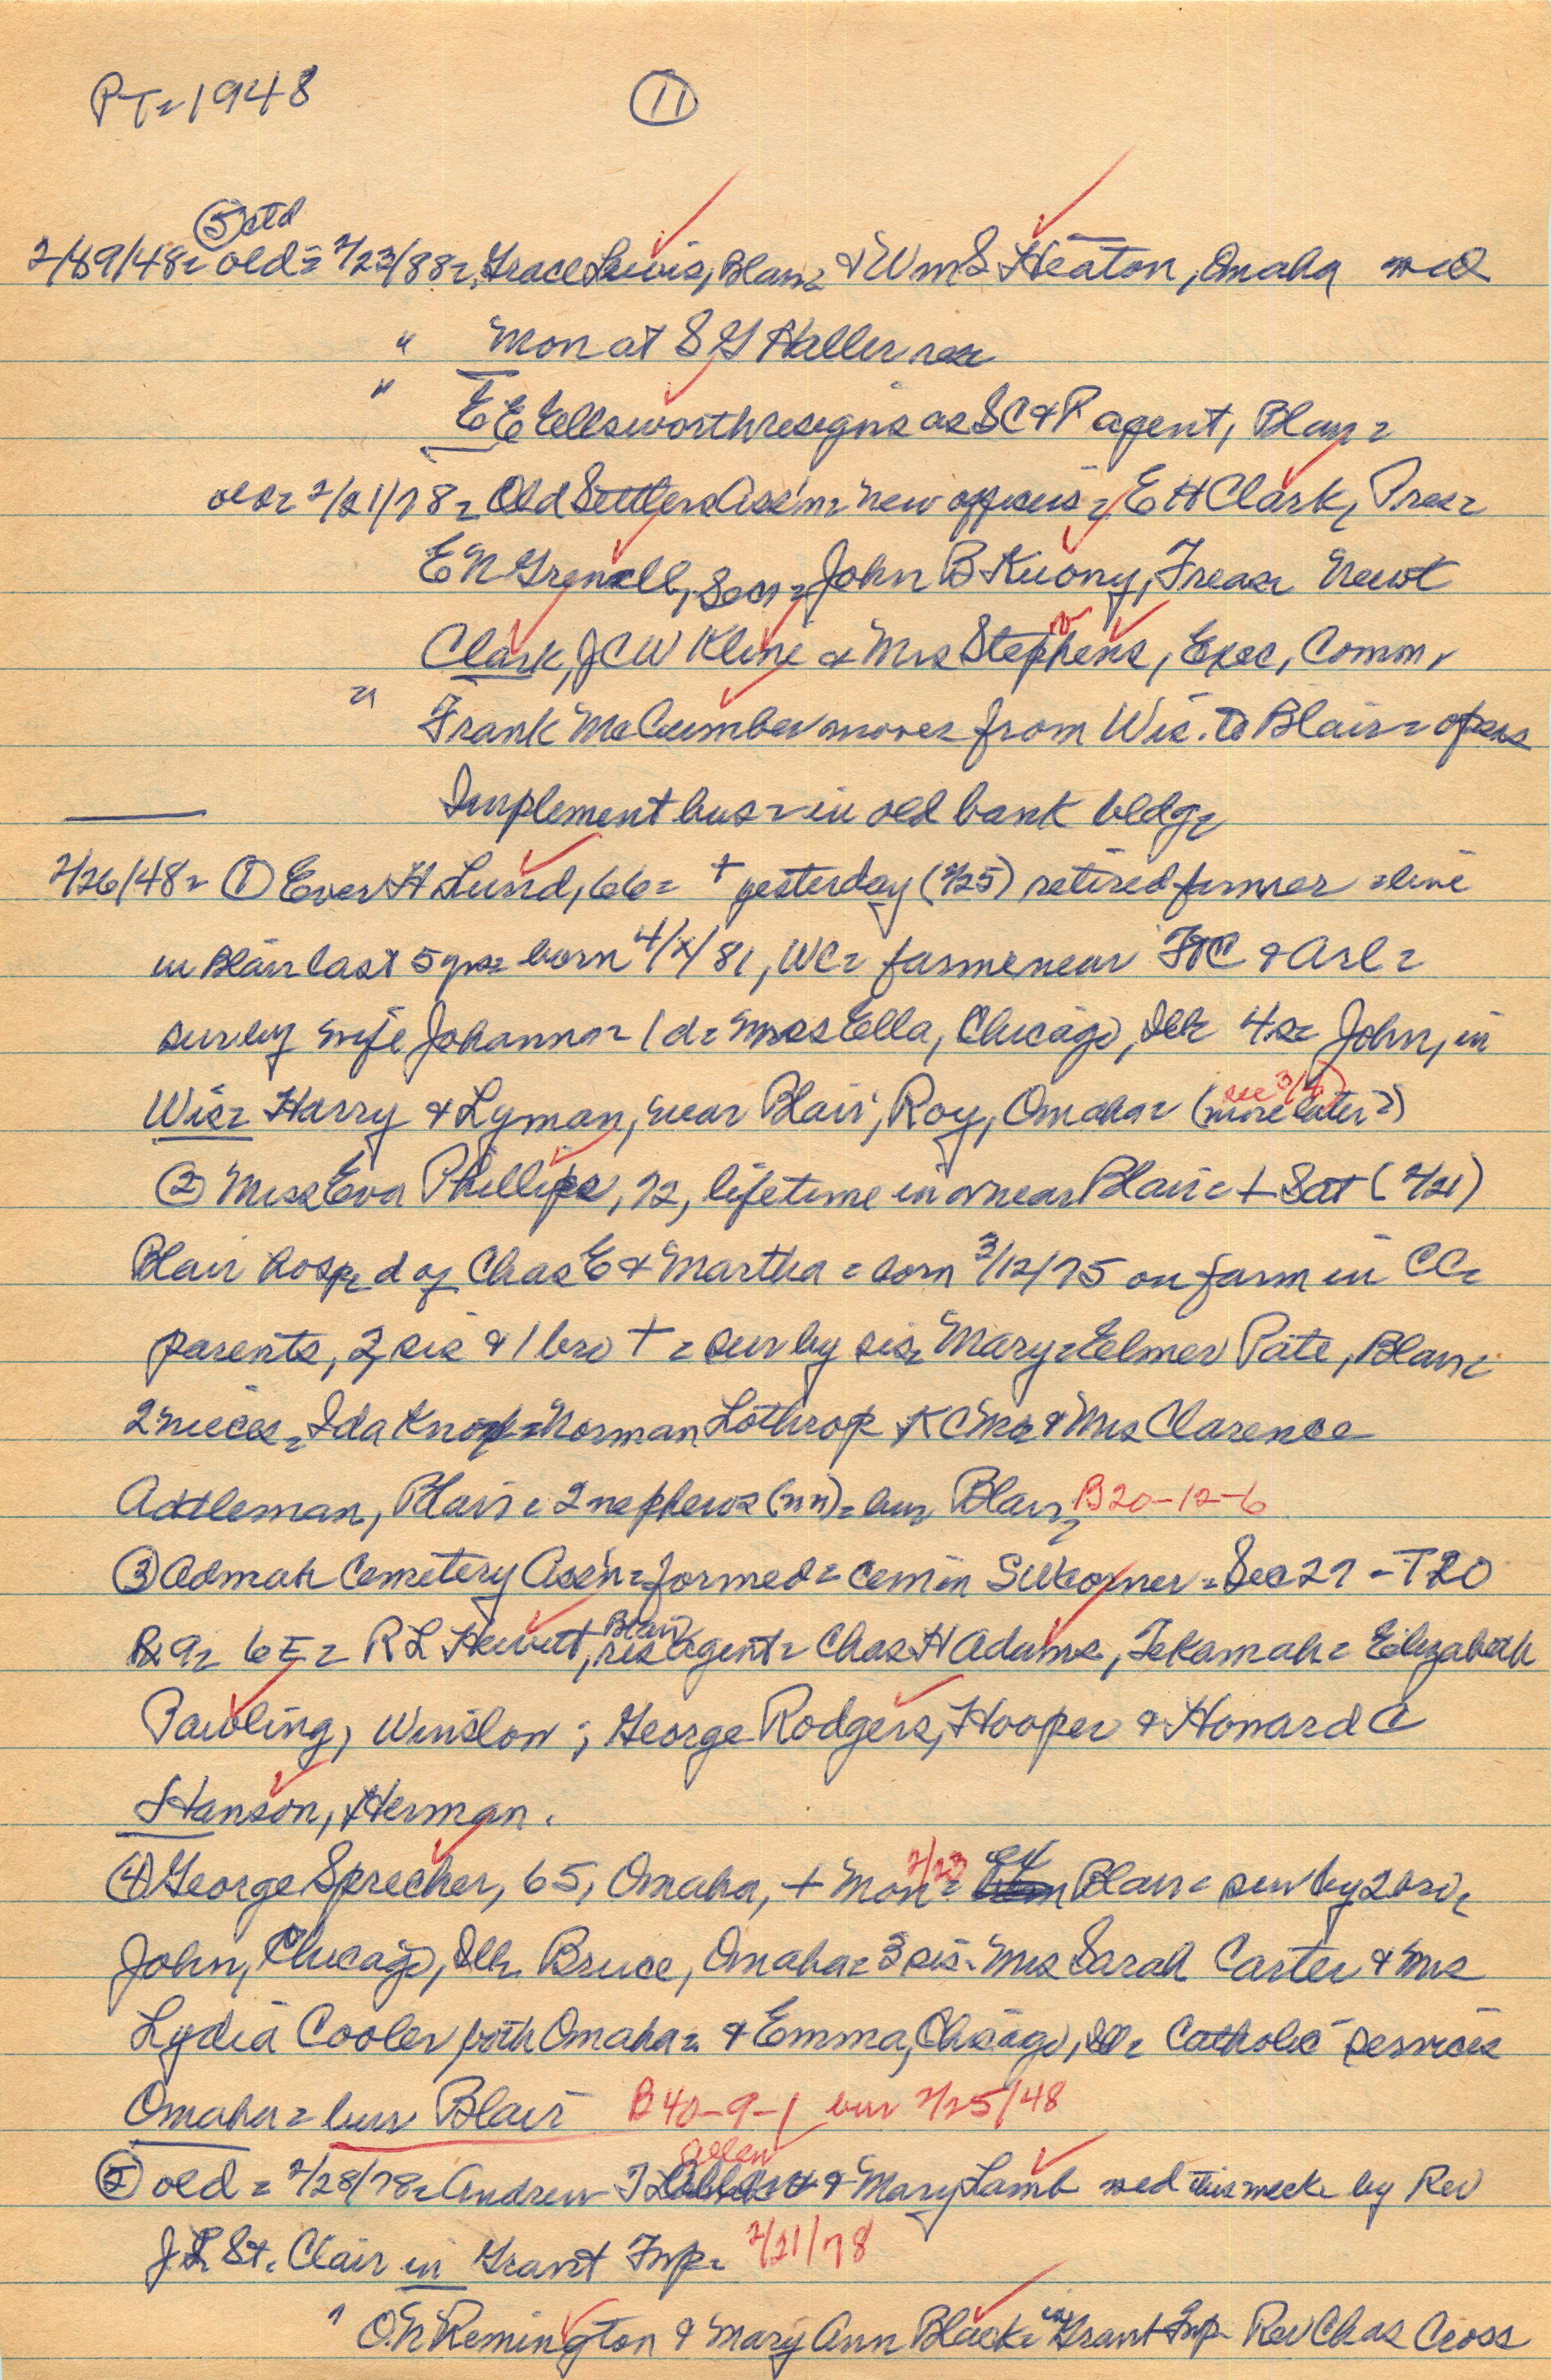 PT= 1948 (11)
(5) ctd
2/19/48= old= 2/23/88= Grace Lewis, Blair= & Wm S Heaton, Omaha wed
" Mon at S G Haller res=
" E E Ellsworth resigns as SC&P agent, Blair=
old= 2/21/78= Old Settlers Ass'n= new officers= E H Clark, Pres=
E N Grenell, Sec= John B Kuony, Treas= Newt
Clark, J C W Kline & Mrs Stephens, Exec, Comm,
" Frank McCumber moves from Wis. to Blair= opens
Implement bus= in old bank bldg=
2/26/48= (1) Ever H Lund, 66= + yesterday (2/25) retired farmer =live
in Blair last 5 yrs= born 4/x/81, WC= farmer near FtC & Arl=
sur by wife Johanna= 1 d= Miss Ella, Chicago, Ill= 4 s= John, in
Wis= Harry & Lyman, near Blair, Roy, Omaha= (more later=)
see 3/4
(2) Miss Eva Phillips, 72, lifetime in or near Blair= + Sat (2/21)
Blair hosp= d of Chas E & Martha= born 3/12/75 on farm in CC=
parents, 2 sis & 1 bro + = sur by sis= Mary=Elmer Pate, Blair=
2 nieces= Ida Knopf=Norman Lothrop KC Mo & Mrs Clarence
Addleman, Blair= 2 nephews (nn)= bur Blair= B20-12-6
(3) Admah Cemetery Ass'n= formed= cem in SW corner= Sec 27 - T20
R 9= 6E= R L Hewitt, Blair res agent= Chas H Adams, Tekamah= Elizabeth
Pawling, Winslow; George Rodgers, Hooper & Howard C
Hanson, Herman.
(4) George Sprecher, 65, Omaha, + Mon= 2/23 ex Blair= sur by 2 bro=
John, Chicago, Ill= Bruce, Omaha= 3 sis= Mrs Sarah Carter & Mrs
Lydia Cooler both Omaha= & Emma, Chicago, Ill= Catholic services
Omaha= bur Blair B40-9-1 bur 2/25/48
(5) old= 2/28/78= Andrew J Allen & Mary Lamb wed this week= by Rev
J R St. Clair in Grant Twp= 2/21/78
" O N Remington & Mary Ann Black= in Grant Twp= Rev Chas Cross